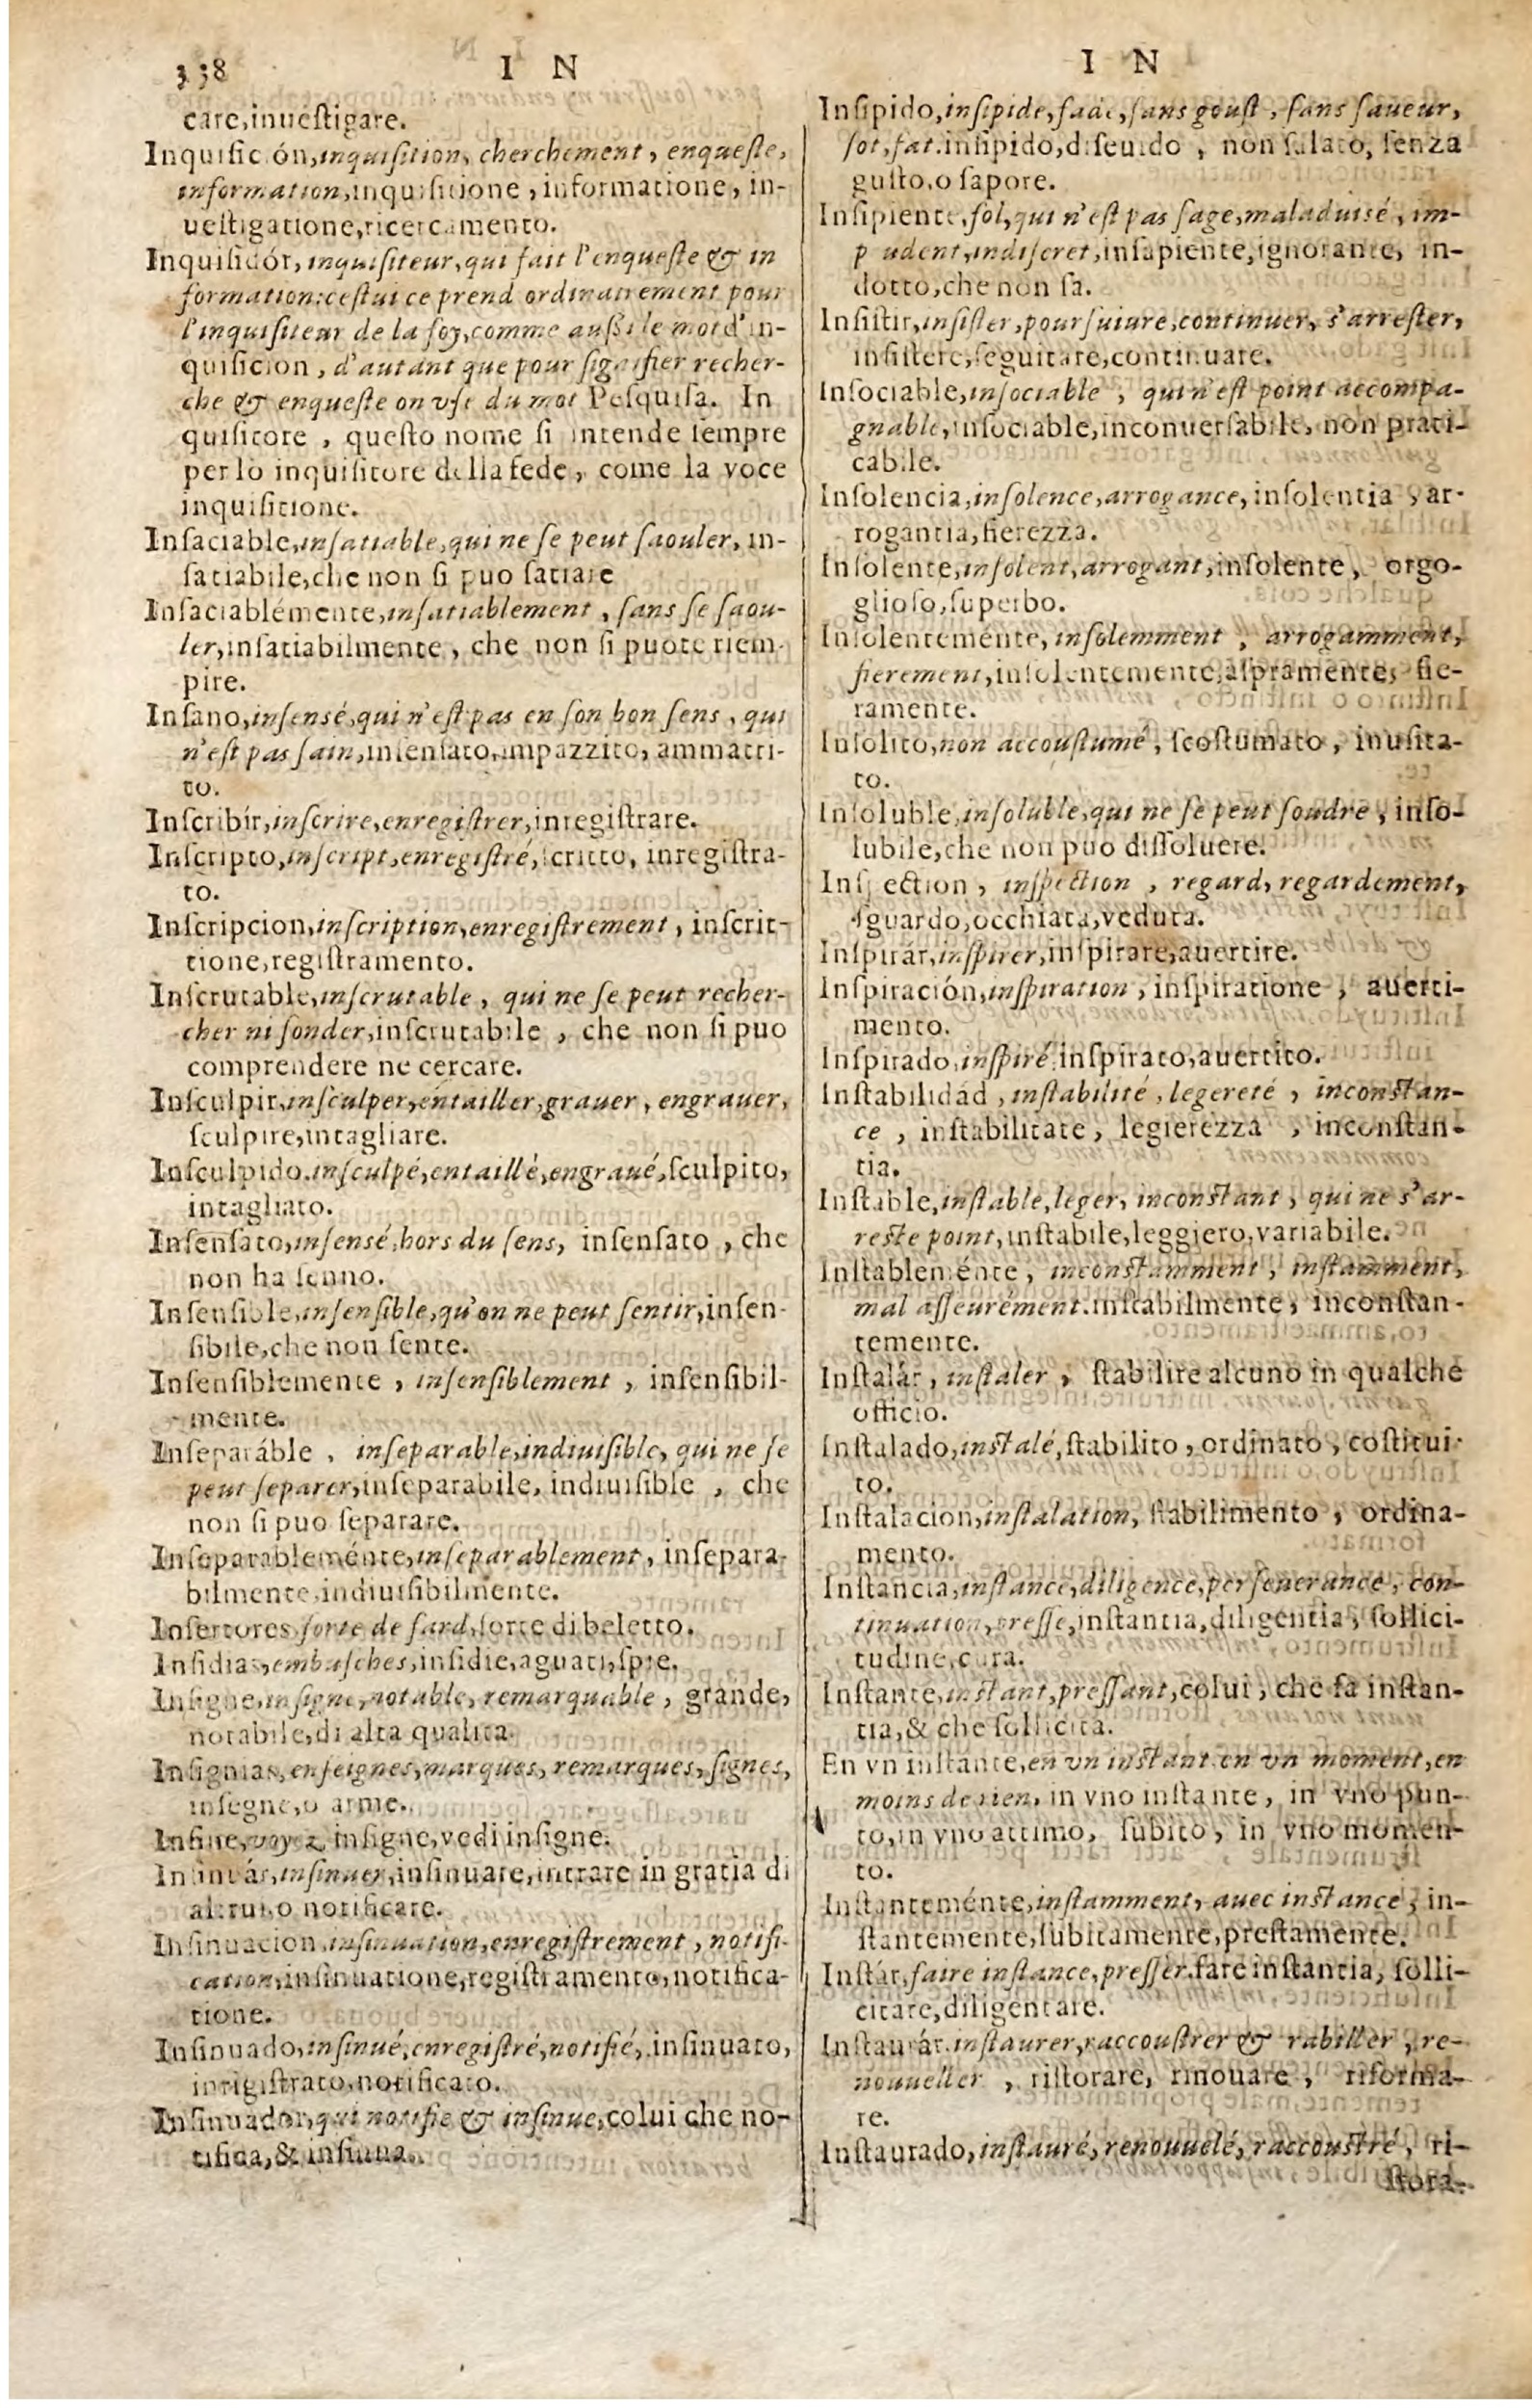 338 I N
care,inueſtigare.
Inquiſición,inquiſition, cherchement, enqueſte,
information,inquiſitione, informatione, in-
ueſtigatione,ricercamento.
Inquiſidór, inquiſiteur,qui fait l'enqueſte & in
formation:ceſtui ce prend ordinairement pour
l'inquiſiteur de la foy,comme auſsi le mot d'in-
quiſicion, d'autant que pour ſignifier recher-
che & enqueſte on vſe du mot Peſquiſa. In
quiſitore, queſto nome ſi intende ſempre
per lo inquiſitore della fede, come la voce
inquiſitione.
Inſaciable,inſatiable,qui ne ſe peut ſaouler, in-
ſatiabile,che non ſi puo ſatiare
Inſaciableménte,inſatiablement, ſans ſe ſaou-
ler,inſatiabilmente, che non ſi puote riem-
pire.
Inſano,inſensé,qui n'eſt pas en ſon bon ſens, qui
n'eſt pas ſain,inſenſato,impazzito, ammatti-
to.
Inſcribír,inſcrire,enregiſtrer,inregiſtrare.
Inſcripto,inſcript,enregiſtré,ſcritto, inregiſtra-
to.
Inſcripcion,inſcription,enregiſtrement, inſcrit-
tione,regiſtramento.
Inſcrutable,inſcrutable, qui ne ſe peut recher-
cher ni ſonder,inſcrutabile, che non ſi puo
comprendere ne cercare.
Inſculpir,inſculper,entailler,grauer, engrauer,
ſculpire,intagliare.
Inſculpido,inſculpé,entaillé,engraué,ſculpito,
intagliato.
Inſenſato,inſensé,hors du ſens, inſenſato, che
non ha ſenno.
Inſenſible,inſenſible,qu'on ne peut ſentir,inſen-
ſibile,che non ſente.
Inſenſiblemente, inſenſiblement, inſenſibil-
mente.
Inſeparáble, inſeparable,indiuiſible, qui ne ſe
peut ſeparer,inſeparabile, indiuiſible, che
non ſi puo ſeparare.
Inſeparableménte,inſeparablement, inſepara-
bilmente,indiuiſibilmente.
Inſertores ſorte de fard,ſorte di beletto.
Inſidias,embuſches,inſidie,aguati,ſpie.
Inſigne,inſigne,notable,remarquable, grande,
notabile,di alta qualita.
Inſignias,enſeignes,marques, remarques,ſignes,
inſegne,o arme.
Inſine,voyez, inſigne,vedi inſigne.
Inſinuár,inſinuer,inſinuare,intrare in gratia di
altrui o notificare.
Inſinuacion,inſinuation,enregiſtrement, notifi-
cation,inſinuatione,regiſtramento,notifica-
tione.
Inſinuado,inſinué,enregiſtré,notifié,inſinuato,
inrigiſtrato,notificato.
Inſinuador,qui notifie & inſinue,colui che no-
tifica,& inſinua.
I N
Inſipido,inſipide,fade,ſans gouſt, ſans ſaueur,
ſot,fat.inſipido,diſeuido, non ſalato, ſenza
guſto,o ſapore.
Inſipiente,fol,qui n'eſt pas ſage,maladuisé, im-
p udent,indiſcret,inſapiente,ignorante, in-
dotto,che non ſa.
Inſiſtir,inſiſter,pourſuiure,continuer, s'arreſter,
inſiſtere,ſeguitare,continuare.
Inſociable,inſociable, qui n'eſt point accompa-
gnable,inſociable,inconuerſabile, non prati-
cabile.
Inſolencia,inſolence,arrogance,inſolentia, ar-
rogantia,fierezza.
Inſolente,inſolent,arrogant,inſolente, orgo-
glioſo,ſuperbo.
Inſolenteménte, inſolemment, arrogamment,
fierement,inſolentemente,aſpramente, fie-
ramente.
Inſolito,non accouſtumé, ſcoſtumato, inuſita-
to.
Inſoluble,inſoluble,qui ne ſe peut ſoudre, inſo-
lubile,che non puo diſſoluere.
Inſpection, inſpection, regard, regardement,
ſguardo,occhiata,veduta.
Inſpirár,inſpirer,inſpirare,auertire.
Inſpiración,inſpiration, inſpiratione, auerti-
mento.
Inſpirado,inſpiré,inſpirato,auertito.
Inſtabilidád, inſtabilité, legereté, inconſtan-
ce, inſtabilitate, legierezza, inconſtan-
tia.
Inſtable,inſtable,leger, inconſtant, qui ne s'ar-
reſte point,inſtabile,leggiero,variabile.
Inſtableménte, inconſtamment, inſtamment,
mal aſſeurément.inſtabilmente, inconſtan-
temente.
Inſtalár, inſtaler, ſtabilire alcuno in qualche
officio.
Inſtalado,inſtalé,ſtabilito, ordinato, coſtitui-
to.
Inſtalacion,inſtalation, ſtabilimento, ordina-
mento.
Inſtancia,inſtance,diligence,perſeuerance, con-
tinuation,preſſe,inſtantia,diligentia, ſollici-
tudine,cura.
Inſtante,inſtant,preſſant,colui, che fa inſtan-
tia,& che ſollicita.
En vn inſtante,en vn inſtant en vn moment,en
moins de rien, in vno inſtante, in vno pun-
to,in vno attimo, ſubito, in vno momen-
to.
Inſtanteménte,inſtamment, auec inſtance, in-
ſtantemente,ſubitamente,preſtamente.
Inſtár,faire inſtance,preſſer.fare inſtantia, ſolli-
citare,diligentare.
Inſtaurár,inſtaurer,raccouſtrer & rabiller, re-
nouueller, riſtorare, rinouare, riforma-
re.
Inſtaurado,inſtauré,renouuelé,raccouſtré, ri-
ſtora-